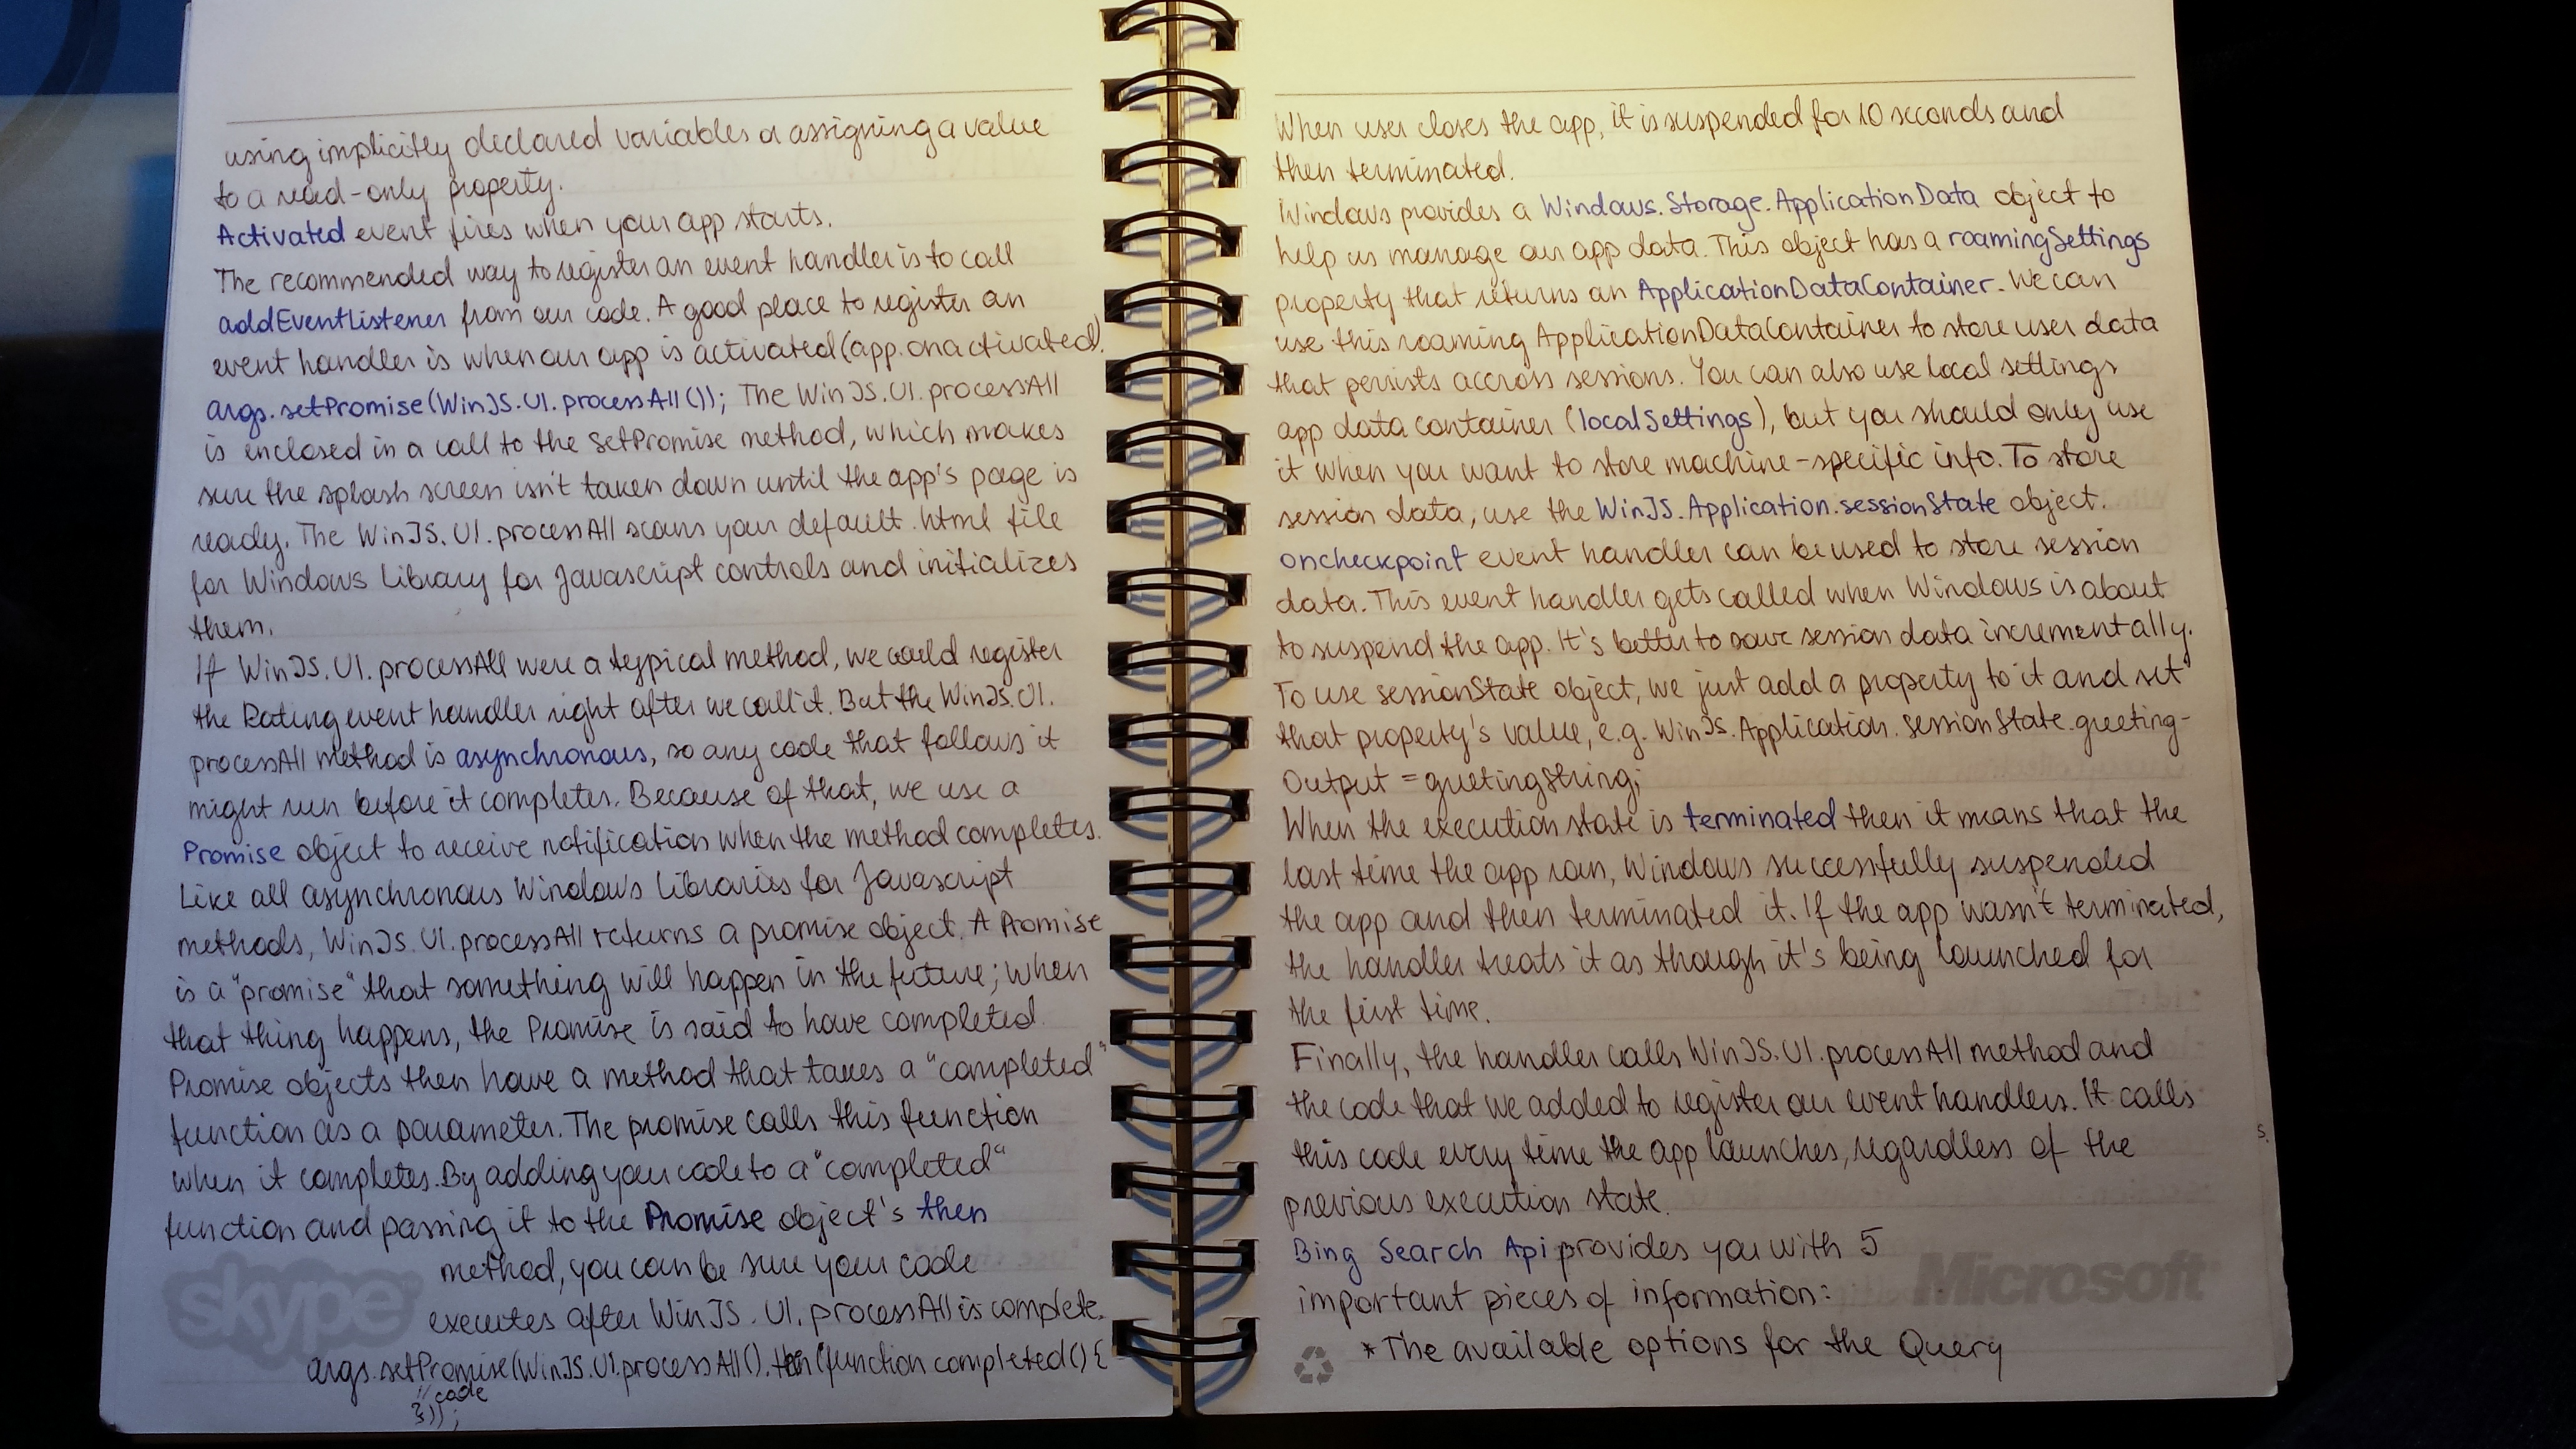 using implicitly declared variables or assigning a value
to a read-only property.
Activated event fires when your app starts.
The recommended way to register an event handler is to call
addEventListener from our code. A good place to register an
event handler is when our app is activated (app.onactivated).
args.setPromise(WinJS.UI.processAll()); The WinJS.UI.processAll
is enclosed in a call to the SetPromise method, which makes
sure the splash screen isn't taken down until the app's page is
ready. The WinJS.UI.processAll scans your default.html file
for Windows Library for Javascript controls and initializes
them.
If WinJS.UI.processAll were a typical method, we could register
the Rating event handler right after we call it. But the WinJS.UI.
processAll method is asynchronous, so any code that follows it
might run before it completes. Because of that, we use a
Promise object to receive notification when the method completes.
Like all asynchronous Windows Libraries for Javascript
methods, WinJS.UI.processAll returns a promise object. A Promise
is a "promise" that something will happen in the future; when
that thing happens, the Promise is said to have completed.
Promise objects then have a method that takes a "completed"
function as a parameter. The promise calls this function
when it completes. By adding your code to a "completed"
function and passing it to the Promise object's then
method, you can be sure your code
executes after WinJS.UI.processAll is complete.
args.setPromise(WinJS.UI.processAll().then(function completed(){
// code
}));
skype
When user closes the app, it is suspended for 10 seconds and
then terminated.
Windows provides a Windows.Storage.ApplicationData object to
help us manage our app data. This object has a roamingSettings
property that returns an ApplicationDataContainer. We can
use this roaming ApplicationDataContainer to store user data
that persists accross sessions. You can also use local settings
app data container (localSettings), but you should only use
it when you want to store machine-specific info. To store
session data, use the WinJS.Application.sessionState object.
oncheckpoint event handler can be used to store session
data. This event handler gets called when Windows is about
to suspend the app. It's better to save session data incrementally.
To use sessionState object, we just add a property to it and set
that property's value, e.g. WinJS.Application.sessionState.greeting-
Output = greetingString;
When the execution state is terminated then it means that the
last time the app ran, Windows successfully suspended
the app and then terminated it. If the app wasn't terminated,
the handler treats it as though it's being launched for
the first time.
Finally, the handler calls WinJS.UI.processAll method and
the code that we added to register our event handlers. It calls
this code every time the app launches, regardless of the
previous execution state.
Bing Search Api provides you with 5
important pieces of information:
Microsoft
* The available options for the Query